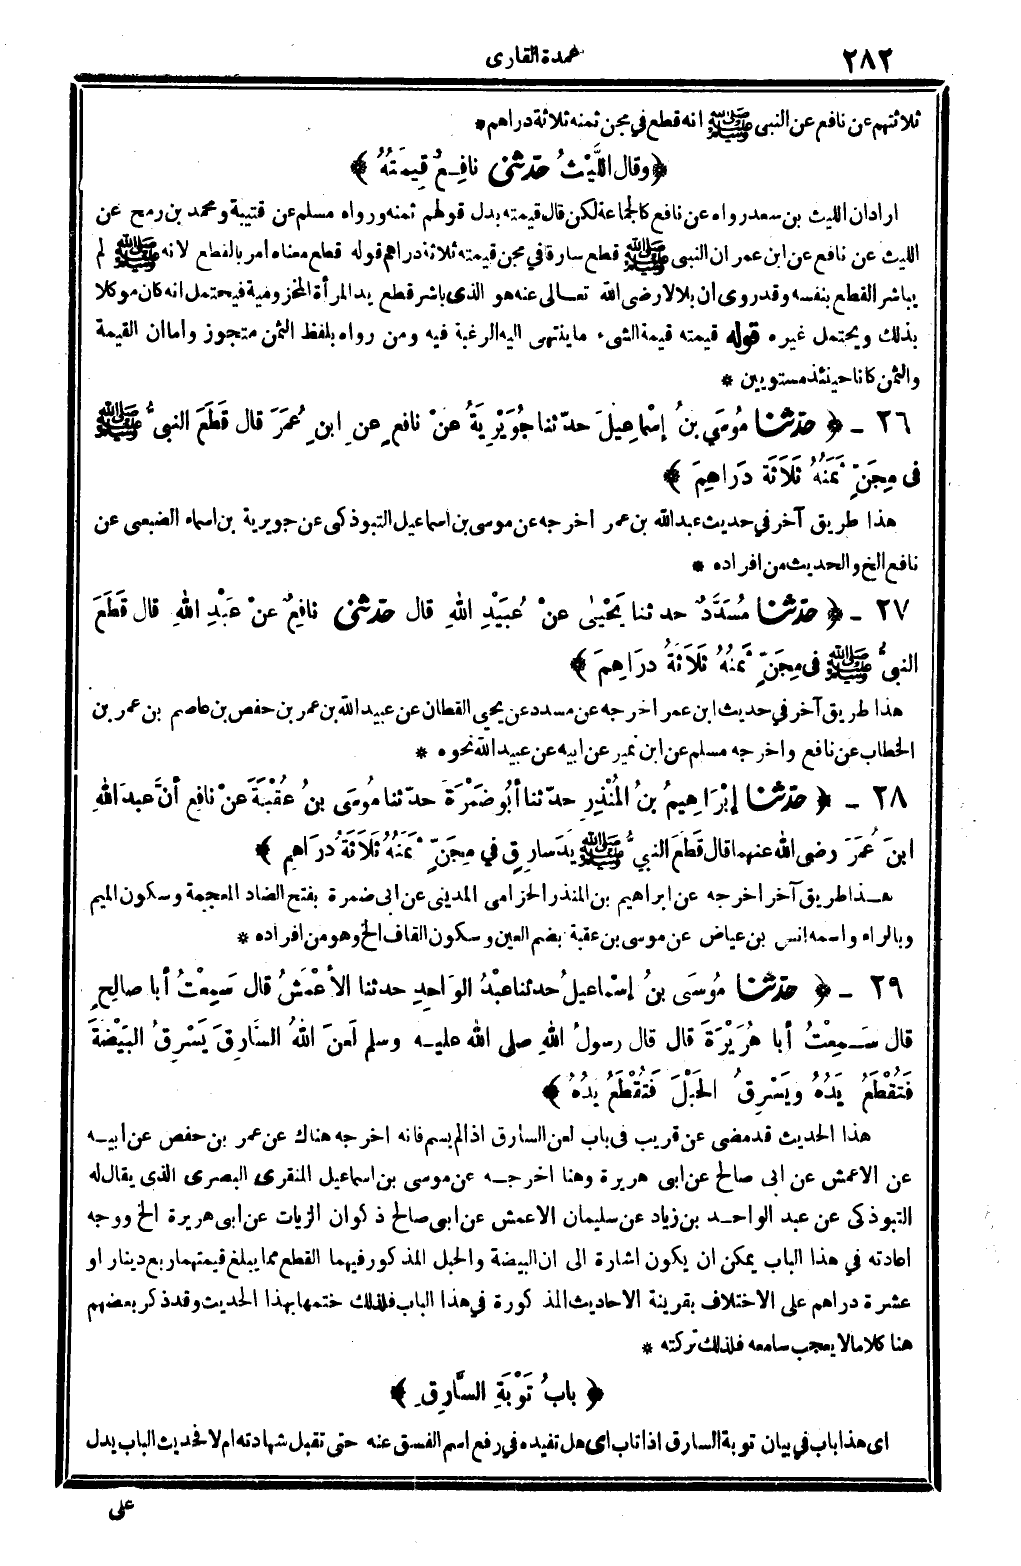 ٢٨٢
عمدة القارى
ثلاثتهم عن نافع عن النبى ﷺ انه قطع في مجن ثمنه ثلاثة دراهم *
﴿ وقال اللَّيْثُ حَدّثنى نافِعٌ قِيمَتُهُ ﴾
ارادان الليث بن سعد رواه عن نافع كالجماعة لكن قال قيمته بدل قولهم ثمنه ورواه مسلم عن قتيبة ومحمد بن رمح عن
الليث عن نافع عن ابن عمر ان النبى ﷺ قطع سارقا في مجن قيمته ثلاثة دراهم قوله قطع معناه امر بالقطع لانه ﷺ لم
يباشر القطع بنفسه وقد روى ان بلالا رضى الله تعـالى عنه هو الذى باشر قطع يد المرأة المخزومية فيحتمل انه كان موكلا
بذلك ويحتمل غيره قوله قيمته قيمة الشىء ما ينتهى اليه الرغبة فيه ومن رواه بلفظ الثمن متجوز واما ان القيمة
والثمن كانا حينئذ مستويين *
٢٦ - ﴿ حَدّثنا مُوسَي بنُ إسْماعِيلَ حدّثنا جُوَيْرِيَةُ عنْ نافعٍ عنِ ابنِ عُمَرَ قال قَطَعَ النبىُّ ﷺ
فى مِجَنٍّ ثَمَنُهُ ثَلَاثَةَ دَرَاهِمَ ﴾
هذا طريق آخر في حديث عبدالله بن عمر اخرجه عن موسى بن اسماعيل التبوذكى عن جويرية بن اسماء الضبعى عن
نافع الخ والحديث من افراده *
٢٧ - ﴿ حَدّثنا مُسَدَّدٌ حدثنا يَحْيٰى عنْ عُبَيْدِ اللهِ قال حَدّثنى نافِعٌ عنْ عَبْدِ اللهِ قال قَطَعَ
النبىُّ ﷺ فى مِجَنٍّ ثَمَنُهُ ثَلَاثَةُ دَرَاهِمَ ﴾
هذا طريق آخر في حديث ابن عمر اخرجه عن مسدد عن يحيى القطان عن عبيد الله بن عمر بن حفص بن عاصم بن عمر بن
الخطاب عن نافع واخرجه مسلم عن ابن نمير عن ابيه عن عبيد الله نحوه *
٢٨ - ﴿ حَدّثنا إبْرَاهِيمُ بنُ المُنْذِرِ حدّثنا أبُو ضَمْرَةَ حدّثنا مُوسَى بنُ عُقْبَةَ عنْ نافِعٍ أنَّ عبدَ اللهِ
ابنَ عُمَرَ رضى الله عنهما قال قَطَعَ النبيُّ ﷺ يَدَ سارِقٍ في مِجَنٍّ ثَمَنُهُ ثَلَاثَةُ دَرَاهِمَ ﴾
هـذا طريق آخر اخرجه عن ابراهيم بن المنذر الحزامى المدينى عن ابى ضمرة بفتح الضاد المعجمة وسكون الميم
وبالراء واسمه انس بن عياض عن موسى بن عقبة بضم العين وسكون القاف الخ وهو من افراده *
٢٩ - ﴿ حَدّثنا مُوسَى بنُ إسْماعيلُ حدثنا عبْدُ الوَاحِدِ حدثنا الأعْمَشُ قال سَمِعْتُ أبا صالِحٍ
قال سَـمِعْتُ أبا هُرَيْرَةَ قال قال رسولُ اللهِ صلى الله عليـه وسلم لَعنَ اللهُ السّارِقَ يَسْرِقُ البَيْضَةَ
فَتُقْطَعُ يَدُهُ ويَسْرِقُ الحَبْلَ فَتُقْطَعُ يدُهُ ﴾
هذا الحديث قد مضى عن قريب فى باب لعن السارق اذا لم يسم فانه اخرجه هناك عن عمر بن حفص عن ابيـه
عن الاعمش عن ابى صالح عن ابى هريرة وهنا اخرجـه عن موسى بن اسماعيل المنقرى البصرى الذى يقال له
التبوذكى عن عبد الواحـد بن زياد عن سليمان الاعمش عن ابى صالح ذكوان الزيات عن ابى هريرة الخ ووجه
اعادته في هذا الباب يمكن ان يكون اشارة الى ان البيضة والحبل المذكور فيهما القطع مما يبلغ قيمتهما ربع دينار او
عشرة دراهم على الاختلاف بقرينة الاحاديث المذكورة في هذا الباب فلذلك ختمها بهذا الحديث وقد ذكر بعضهم
هنا كلاما لا يعجب سامعه فلذلك تركته *
﴿ بابُ تَوْبَةِ السَّارِقِ ﴾
اى هذا باب في بيان توبة السارق اذا تاب اى هل تفيده في رفع اسم الفسق عنه حتى تقبل شهادته ام لا فحديث الباب يدل
على